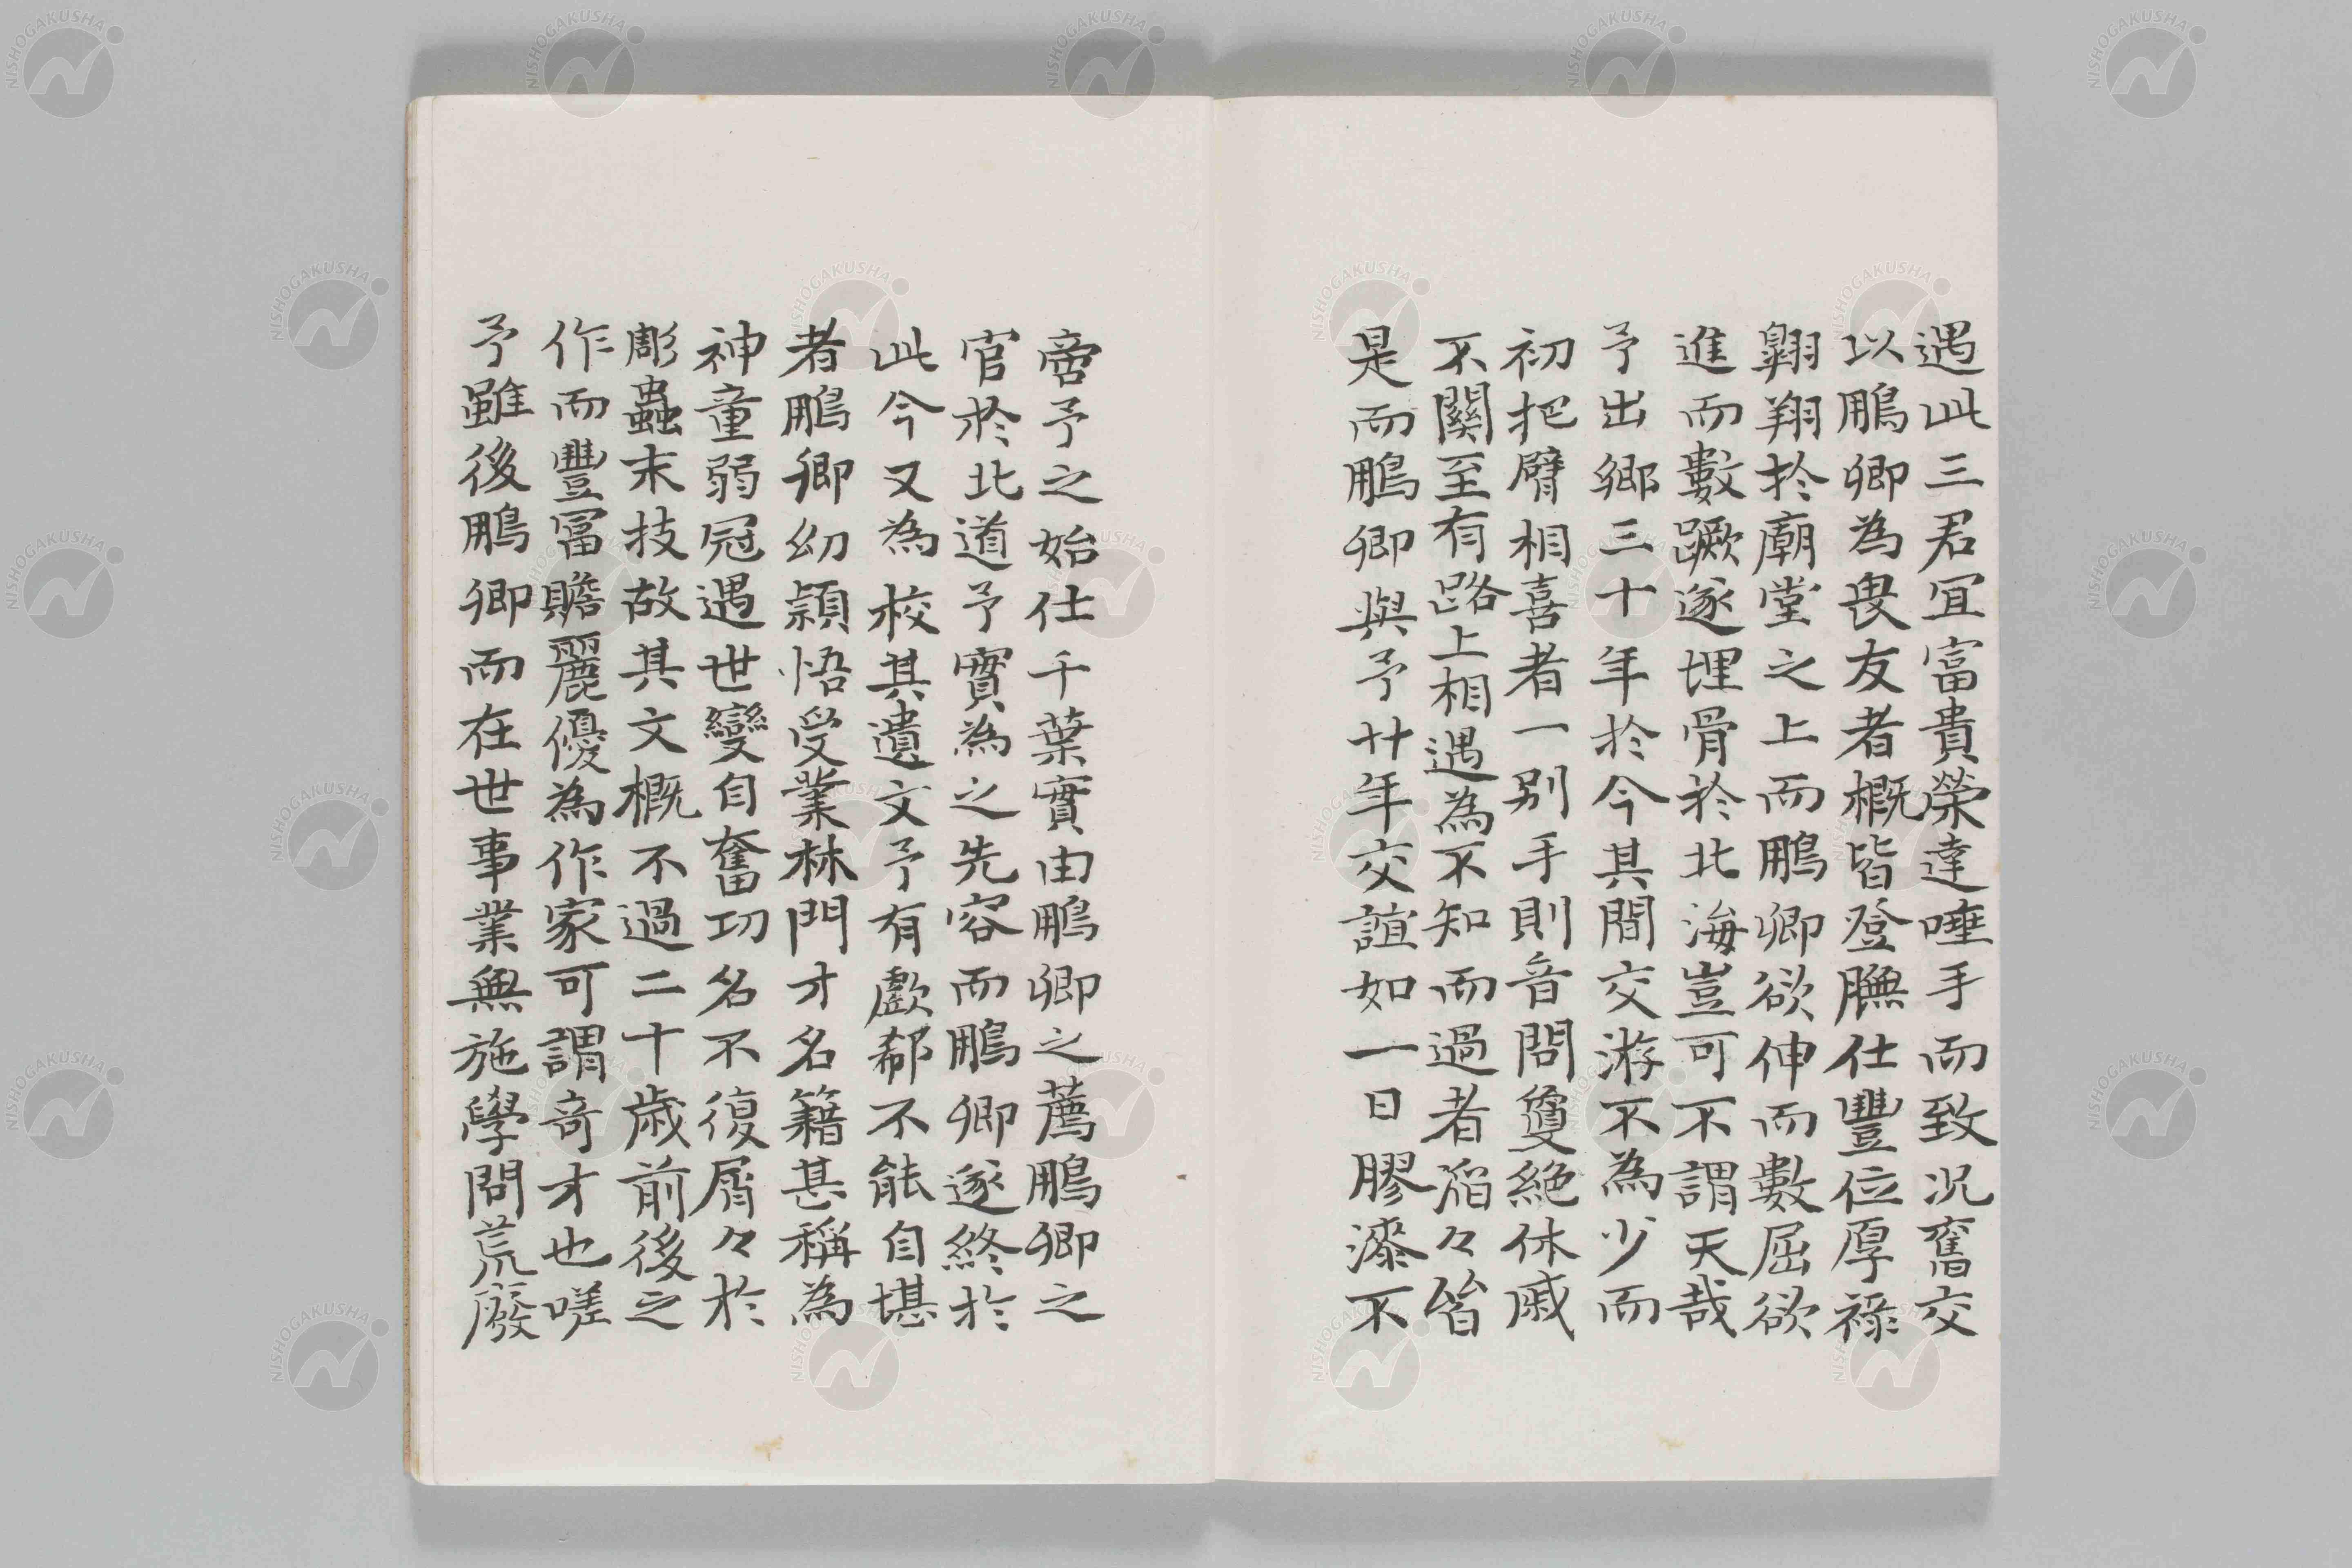 遇此三君宜富貴榮達唾手而致况舊交
以鵬卿為畏友者概皆登膴仕豐位厚祿
翺翔於廟堂之上而鵬卿欲伸而數屈欲
進而數蹶遂埋骨於北海豈可不謂天哉
予出鄉三十年於今其間交游不為少而
初把臂相喜者一別手則音問敻絶休戚
不關至有路上相遇為不知而過者滔々皆
是而鵬卿與予廿年交誼如一日膠漆不
啻予之始仕千葉實由鵬卿之薦鵬卿之
官於北道予實為之先容而鵬卿遂終於
此今又為校其遺文予有歔郗不能自堪
者鵬卿幼穎悟受業林門才名籍甚稱為
神童弱冠遇世變自奮功名不復屑々於
彫蟲末技故其文概不過二十歲前後之
作而豐冨贍麗優為作家可謂竒才也嗟
予雖後鵬卿而在世事業無施學問荒廢
NISHOGAKUSHA